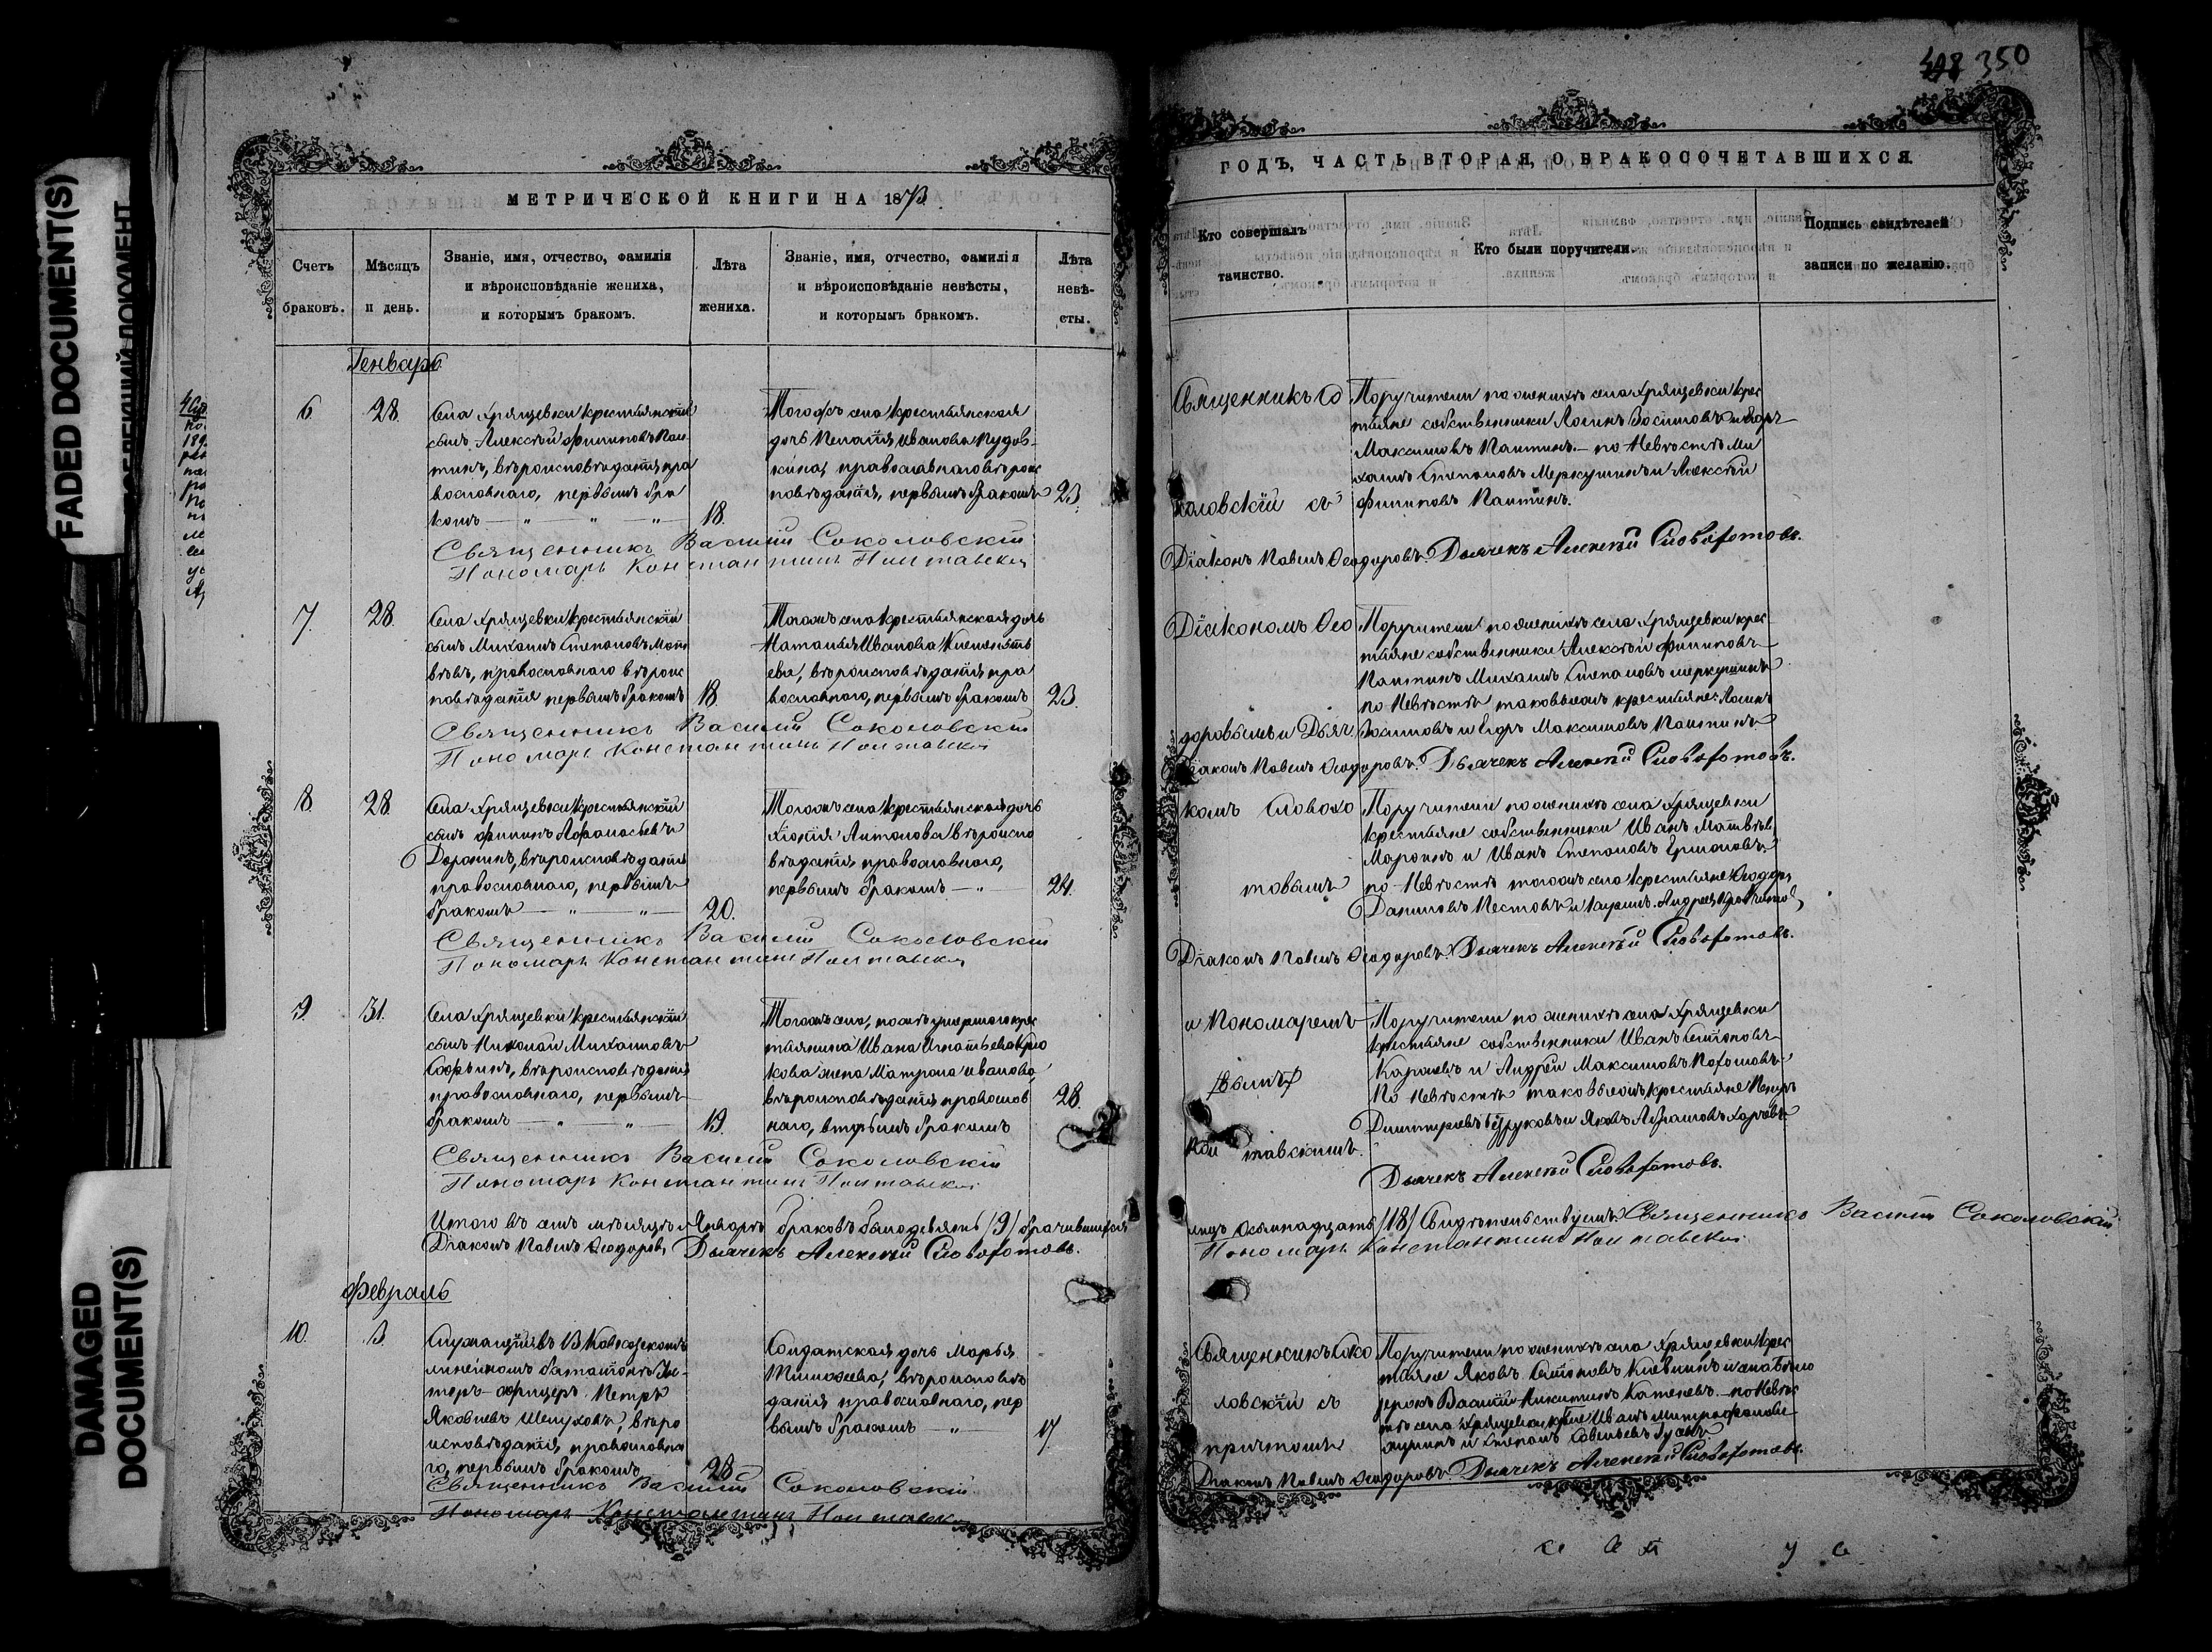 FADED DOCUMENT(S)
DAMAGED
DOCUMENT(S)
350
МЕТРИЧЕСКОЙ КНИГИ НА 1873
Счетъ
браковъ.
Мѣсяцъ
и день.
Званіе, имя, отчество, фамилія
и вѣроисповѣданіе жениха,
и которымъ бракомъ.
Лѣта
жениха.
Званіе, имя, отчество, фамилія
и вѣроисповѣданіе невѣсты,
и которымъ бракомъ.
Лѣта
невѣ-
сты.
Генварь
6
28
Села Хрящевки крестьянскій
сынъ Алексѣй Филиповъ Пан
тинъ, вѣроисповѣданія пра
вославнаго, первымъ бра
комъ
18.
Тогожъ села крестьянская
дочь Пелагія Иванова Пудов-
кина, православнаго вѣроис
повѣданія, первымъ бракомъ
23.
Священникъ Василій Соколовскій
Пономарь Константинъ Полтавскій
7.
28.
Села Хрящевки крестьянскій
сынъ Михаилъ Степановъ Матв
ѣевъ, православнаго вѣроис
повѣданія первымъ бракомъ
18.
Тогожъ села крестьянская дочь
Наталья Иванова
ева, вѣроисповѣданія пра
вославнаго, первымъ бракомъ
23.
Священникъ Василій Соколовскій
Пономарь Константинъ Полтавскій
8
28
Села Хрящевки крестьянскій
сынъ Филипъ Афанасьевъ
Доронинъ, вѣроисповѣданія
православнаго, первымъ
бракомъ
20.
Тогожъ села крестьянская дочь
Хіонія Антонова вѣроиспо
вѣданія православнаго,
первымъ бракомъ
24.
Священникъ Василій Соколовскій
Пономарь Константинъ Полтавскій
9.
31.
Села Хрящевки крестьянскій
сынъ Николай Михаиловъ
вѣроисповѣданія
православнаго, первымъ
бракомъ
19.
Тогожъ села, послѣ умершаго крес
тьянина Ивана Игнатьева
кова жена Матрона Иванова,
вѣроисповѣданія православ
наго, вторымъ бракомъ
28.
Священникъ Василій Соколовскій
Пономарь Константинъ Полтавскій
Итого въ семъ мѣсяцѣ Январѣ браковъ было девять (9) брачившихся
Діаконъ Павелъ Ѳеодоровъ Дьячекъ Алексѣй Словохотовъ.
Февраль
10.
3.
Служащій въ
линейномъ баталіонѣ Ун-
теръ-офицеръ Петръ
Яковлевъ Шелуховъ, вѣро
исповѣданія православна
го, первымъ бракомъ
28
Солдатская дочь Марья
Тимофеева, вѣроисповѣ
данія православнаго, пер
вымъ бракомъ
17
Священникъ Василій Соколовскій
Пономарь Константинъ Полтавскій
ГОДЪ, ЧАСТЬ ВТОРАЯ, О БРАКОСОЧЕТАВШИХСЯ.
Кто совершалъ
таинство.
Кто были поручители.
Подпись свидѣтелей
записи по желанію.
Священникъ Со
коловскій съ
Поручители по женихѣ села Хрящевки крес
тьяне собственники Логинъ Восиповъ и Егоръ
Максимовъ Пантинъ.— по Невѣстѣ Ми
хаилъ Степановъ Меркушинъ и Алексѣй
Филиповъ Пантинъ.
Діаконъ Павелъ Ѳеодоровъ. Дьячекъ Алексѣй Словохотовъ.
Діакономъ Ѳео
доровымъ и Дьяч
Поручители по женихѣ села Хрящевки крес
тьяне собственники Алексѣй Филиповъ
Пантинъ Михаилъ Степановъ Меркушинъ
по Невѣстѣ таковыежъ крестьяне: Логинъ
Восиповъ и Егоръ Максимовъ Пантинъ
Діаконъ Павелъ Ѳеодоровъ. Дьячекъ Алексѣй Словохотовъ.
комъ Словохо
товымъ
Поручители по женихѣ села Хрящевки
крестьяне собственники Иванъ Матвѣев
Марокинъ и Иванъ Степановъ Ермолаевъ
по Невѣстѣ тогожъ села крестьяне Ѳеодоръ
Даниловъ Пестовъ и
Діаконъ Павелъ Ѳеодоровъ. Дьячекъ Алексѣй Словохотовъ.
и Пономаремъ
Пол тавскимъ.
Поручители по женихѣ села Хрящевки
крестьяне собственники Иванъ
и Андрей Максимовъ
По Невѣстѣ таковыежъ крестьяне Петръ
Дмитріевъ и Яковъ Абрамовъ
Дьячекъ Алексѣй Словохотовъ.
лицъ осьмнадцать (18) Свидѣтельствуемъ: Священникъ Василій Соколовскій
Пономарь Константинъ Полтавскій
Священникъ Соко
ловскій съ
причтомъ
Поручители по женихѣ села Хрящевки крес
тьяне Яковъ
Василій Никитинъ Каменевъ.— по Невѣс
тѣ села Хрящевки Иванъ Митрофановъ
и Степанъ Савельевъ Гусевъ.
Діаконъ Павелъ Ѳеодоровъ. Дьячекъ Алексѣй Словохотовъ.